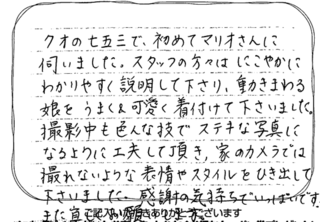 クオの七五三で、初めてマリオさんに
伺いました。スタッフの方々はにこやかに
わかりやすく説明して下さり、動きまわる
娘をうまく&可愛く着付けて下さいました。
撮影中も色んな技でステキな写真に
なるように工夫して頂き、家のカメラでは
撮れないような表情やスタイルをひき出して
下さいました。感謝の気持ちでいっぱいです
ご記入いただきありがとうございます